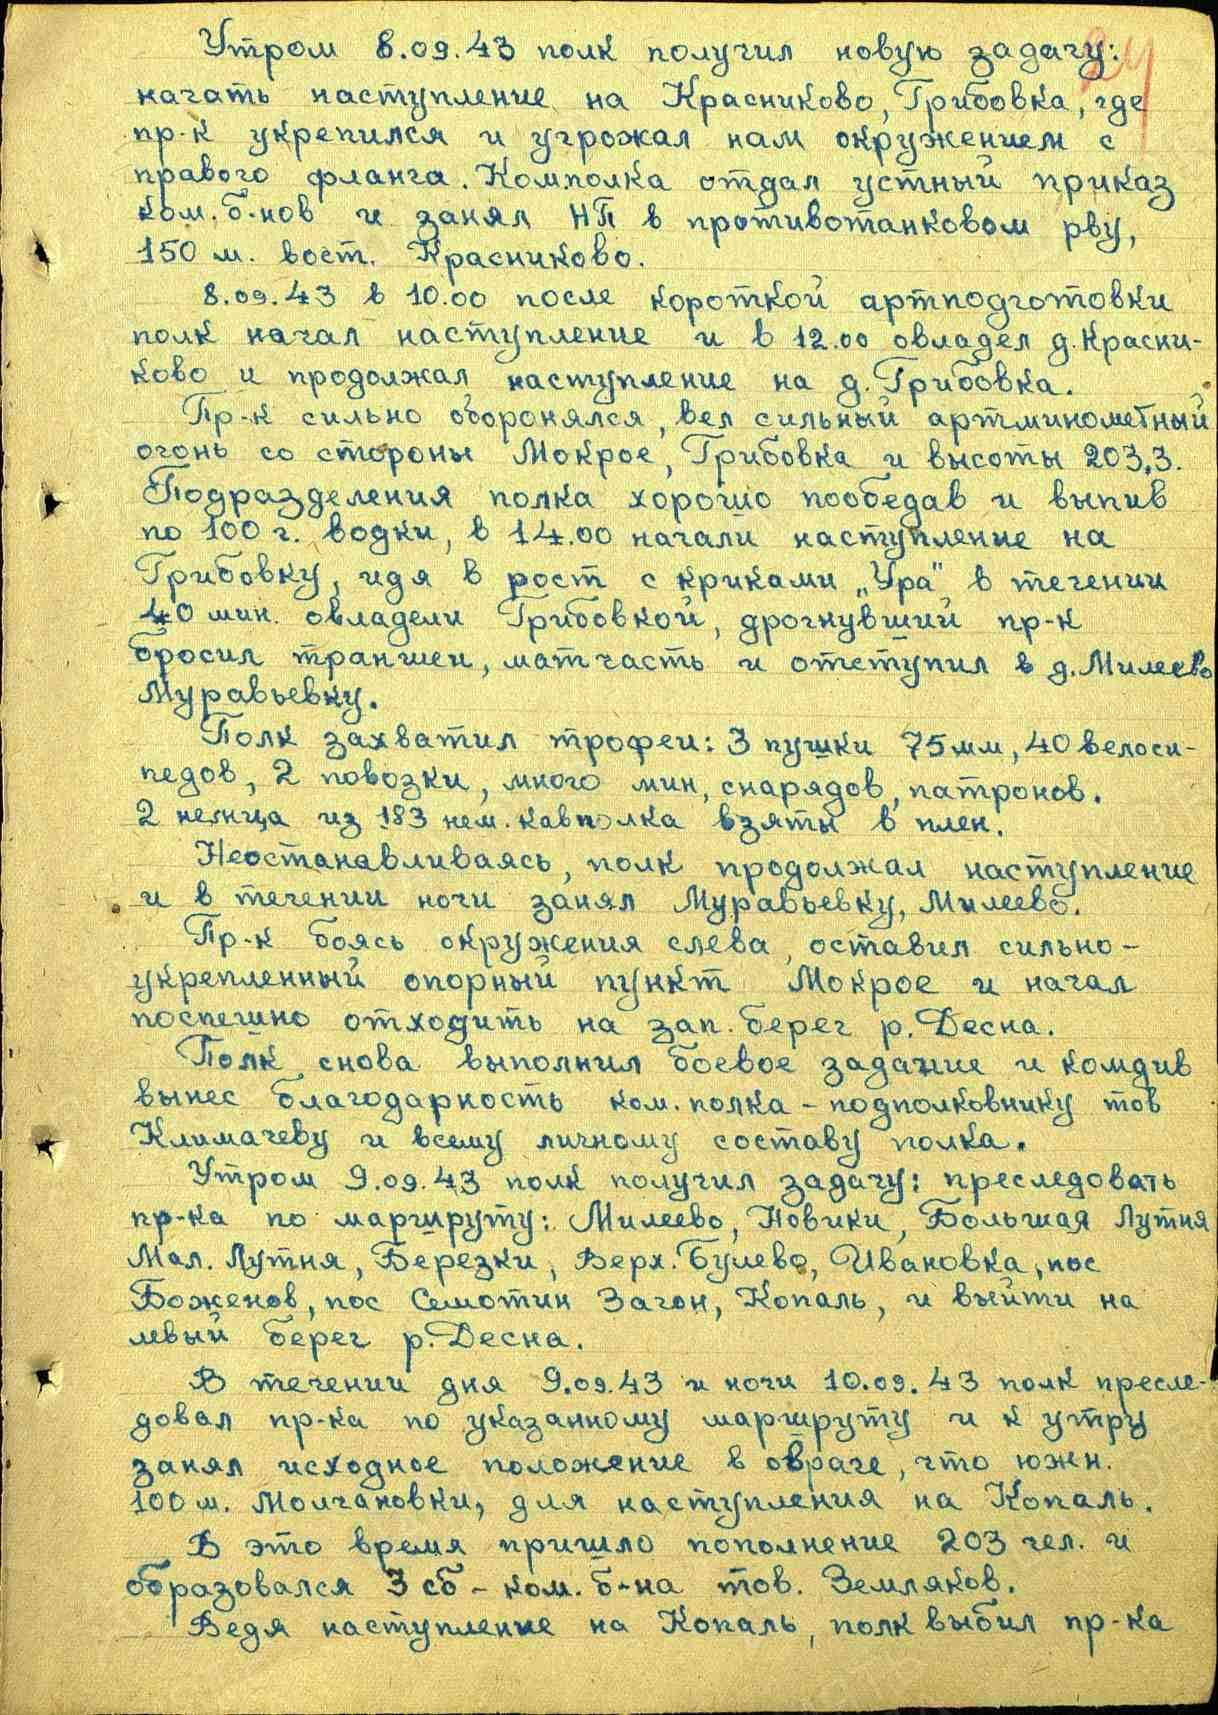 24
Утром 8.09.43 полк получил новую задачу:
начать наступление на Красниково, Грибовка, где
пр-к укрепился и угрожал нам окружением с
правого фланга. Комполка отдал устный приказ
ком. б-нов и занял НП в противотанковом рву,
150 м. вост. Красниково.
8.09.43 в 10.00 после короткой артподготовки
полк начал наступление и в 12.00 овладел д. Красни-
ково и продолжал наступление на д. Грибовка.
Пр-к сильно оборонялся, вел сильный артминометный
огонь со стороны Мокрое, Грибовка и высоты 203,3.
Подразделения полка хорошо пообедав и выпив
по 100 г. водки, в 14.00 начали наступление на
Грибовку, идя в рост с криками „Ура" в течении
40 мин. овладели Грибовкой, дрогнувший пр-к
бросил траншеи, матчасть и отступил в д. Милеево
Муравьевку.
Полк захватил трофеи: 3 пушки 75мм, 40 велоси-
педов, 2 повозки, много мин, снарядов, патронов.
2 немца из 183 нем. кавполка взяты в плен.
Неостанавливаясь, полк продолжал наступление
и в течении ночи занял Муравьевку, Милеево.
Пр-к боясь окружения слева, оставил сильно-
укрепленный опорный пункт Мокрое и начал
поспешно отходить на зап. берег р. Десна.
Полк снова выполнил боевое задание и комдив
вынес благодарность ком. полка - подполковнику тов
Климачеву и всему личному составу полка.
Утром 9.09.43 полк получил задачу: преследовать
пр-ка по маршруту: Милеево, Новики, Большая Лутня
Мал. Лутня, Березки, Верх. Булево, Ивановка, пос
Боженов, пос Семотин Загон, Копаль, и выйти на
левый берег р. Десна.
В течении дня 9.09.43 и ночи 10.09.43 полк пресле-
довал пр-ка по указанному маршруту и к утру
занял исходное положение в овраге, что южн.
100 м. Молчановки, для наступления на Копаль.
В это время пришло пополнение 203 чел. и
образовался 3 сб - ком. б-на тов. Земляков.
Ведя наступление на Копаль, полк выбил пр-ка